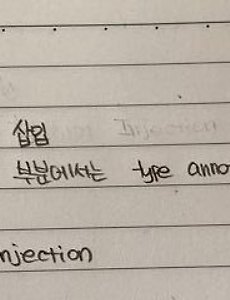 삽입
부분에서는 type anno
njection